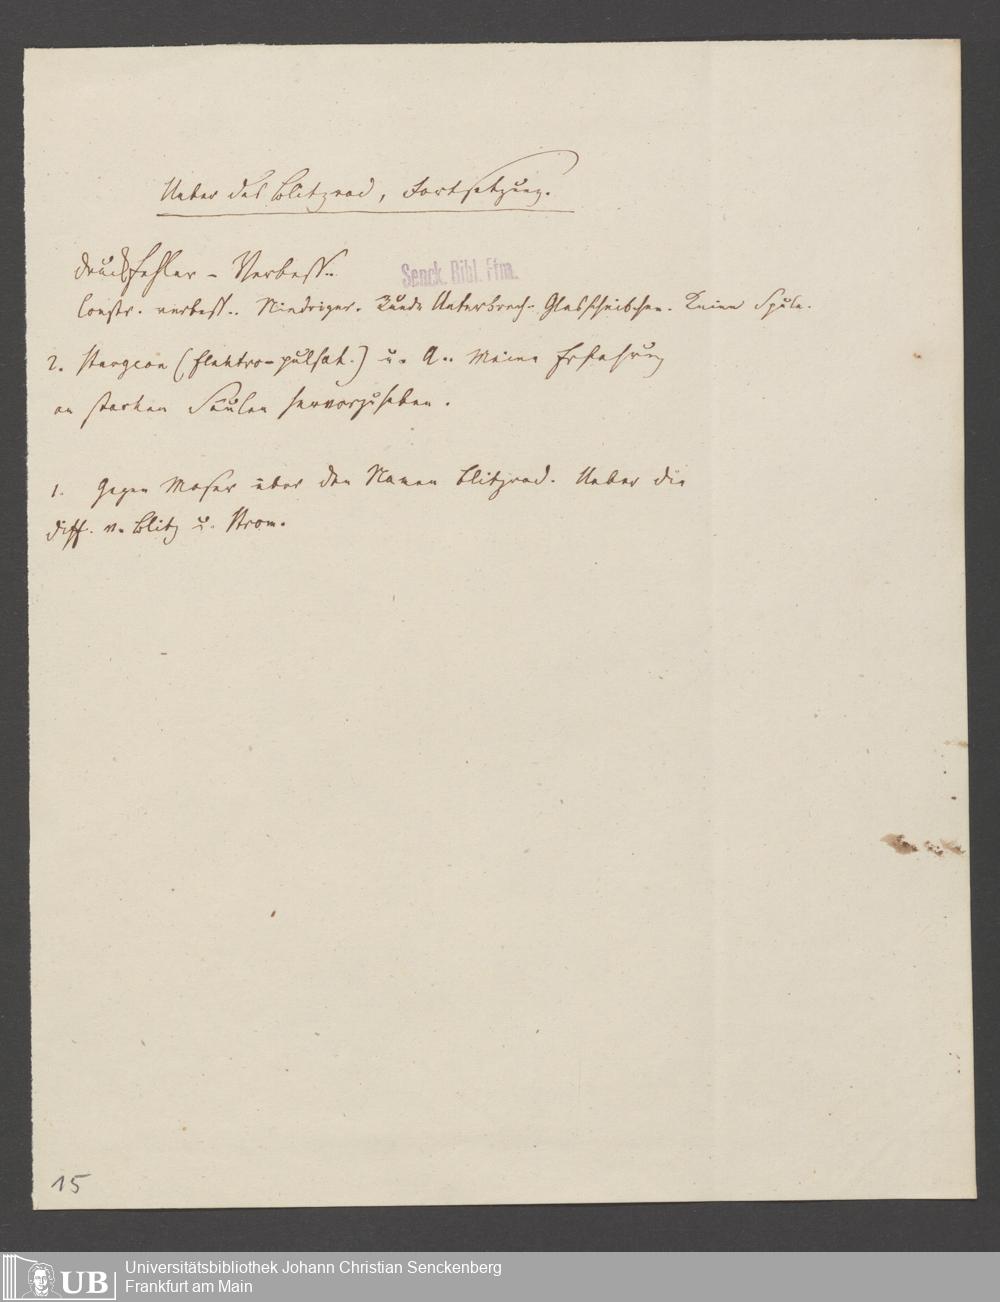 Ueber das Blitzrad, Fortsetzung.
Druckfehler - Verbess..
Senck. Bibl. Ffm.
Constr. verbess.. Niedriger. Runde Unterbrech. Glasscheibchen. Keine Spule.
2. Sturgeon (Elektro-pulsat.) u. A.. Meine Erfahrung
an starken Säulen hervorzuheben.
1. Gegen Moser über den Namen Blitzrad. Ueber die
Diff. v. Blitz u. Strom.
15
UB
Universitätsbibliothek Johann Christian Senckenberg
Frankfurt am Main